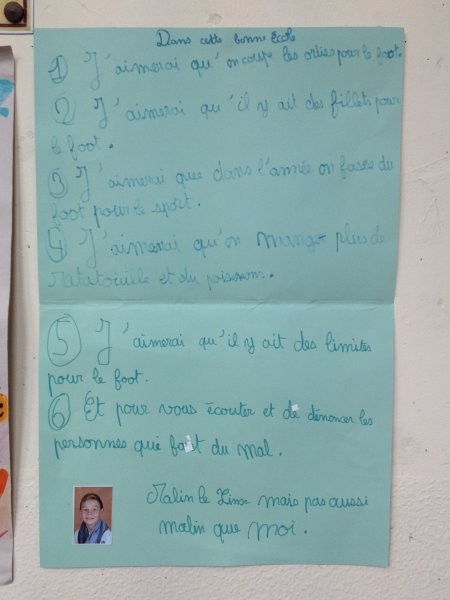 Dans cette bonne École
① J'aimerai qu'on coupe les orties pour le foot.
② J'aimerai qu'il y ait des fillets pour
le foot.
③ J'aimerai que dans l'année on fasse du
foot pour le sport.
④ J'aimerai qu'on manger plus de
Ratatouille et du poissons.
⑤ J'aimerai qu'il y ait des limites
pour le foot.
⑥ Et pour vous écouter et de dénoncer les
personnes qui fait du mal.
Malin le Linx mais pas aussi
malin que moi.